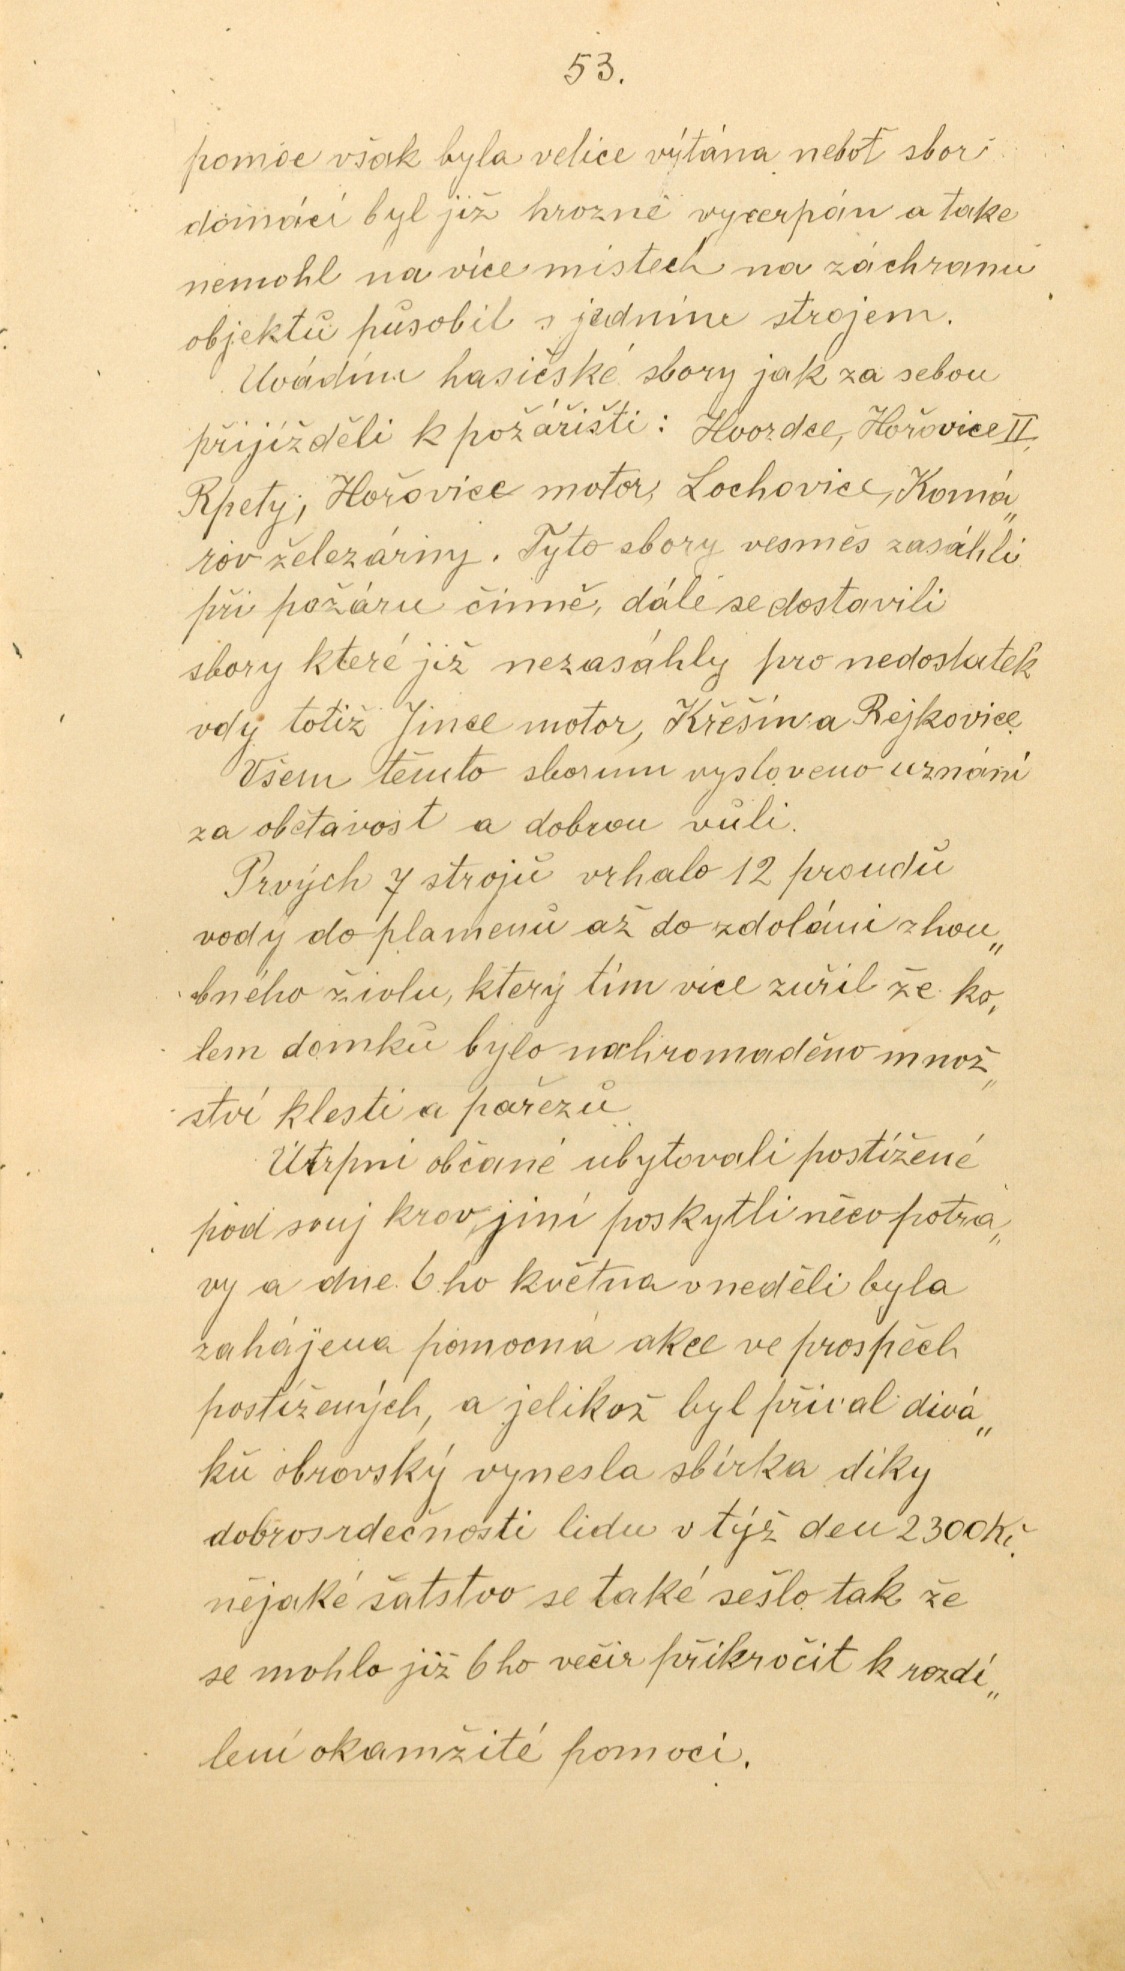 53.
pomoc však byla velice výtána neboť sbor
domácí byl již hrozně vyčerpán a take
nemohl na více místech na záchranu
objektů působit s jedním strojem.
Uvádím hasičské sbory jak za sebou
přijížděli k požářišti: Hvozdce, Hořovice II,
Rpety, Hořovice motor, Lochovice, Komá„
rov železárny. Tyto sbory vesměs zasáhli
při požáru činně, dále se dostavili
sbory které již nezasáhly pro nedostatek
vdy totiž Jince motor, Křešín a Rejkovice.
Všem těmto sborum vysloveno uznání
za obětavost a dobrou vůli.
Prvých 7 strojů vrhalo 12 proudů
vody do plamenů až do zdoláni zhou„
bného živlu, který tím více zuřil že ko„
lem domků bylo nahromaděno množ„
ství klesti a pařezů
Útrpní občané ubytovali postížené
pod svuj krov, jiní poskytli něco potra„
vy a dne 6ho května v neděli byla
zahájena pomocná akce ve prospěch
postížených, a jelikož byl příval divá„
ků obrovský vynesla sbírka díky
dobrosrdečnosti lidu v týž den 2300Kč.
nějaké šatstvo se také sešlo tak že
se mohlo již 6ho večír přikročit k rozdí„
lení okamžité pomoci.